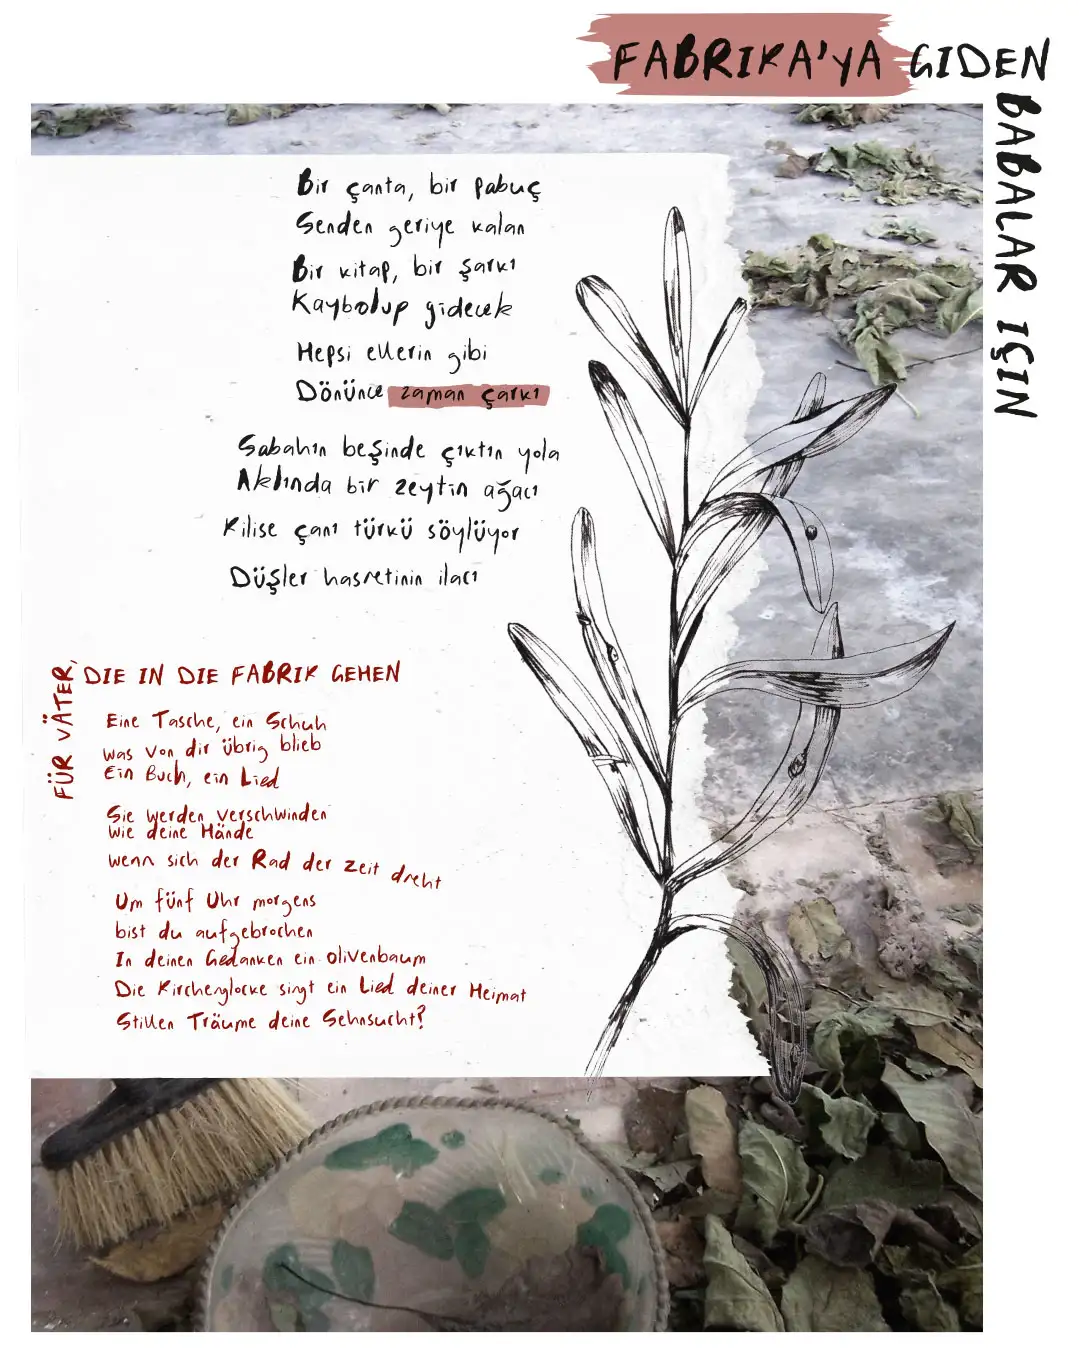 FABRIKA'YA GIDEN
BABALAR IÇIN
Bir çanta, bir pabuç
Senden geriye kalan
Bir kitap, bir şarkı
Kaybolup gidecek
Hepsi ellerin gibi
Dönünce zaman çarkı
Sabahın beşinde çıktın yola
Aklında bir zeytin ağacı
Kilise çanı türkü söylüyor
Düşler hasretinin ilacı
FÜR VÄTER,
DIE IN DIE FABRIK GEHEN
Eine Tasche, ein Schuh
was von dir übrig blieb
Ein Buch, ein Lied
Sie werden verschwinden
wie deine Hände
wenn sich der Rad der Zeit dreht
Um fünf Uhr morgens
bist du aufgebrochen
In deinen Gedanken ein Olivenbaum
Die Kirchenglocke singt ein Lied deiner Heimat
Stillen Träume deine Sehnsucht?